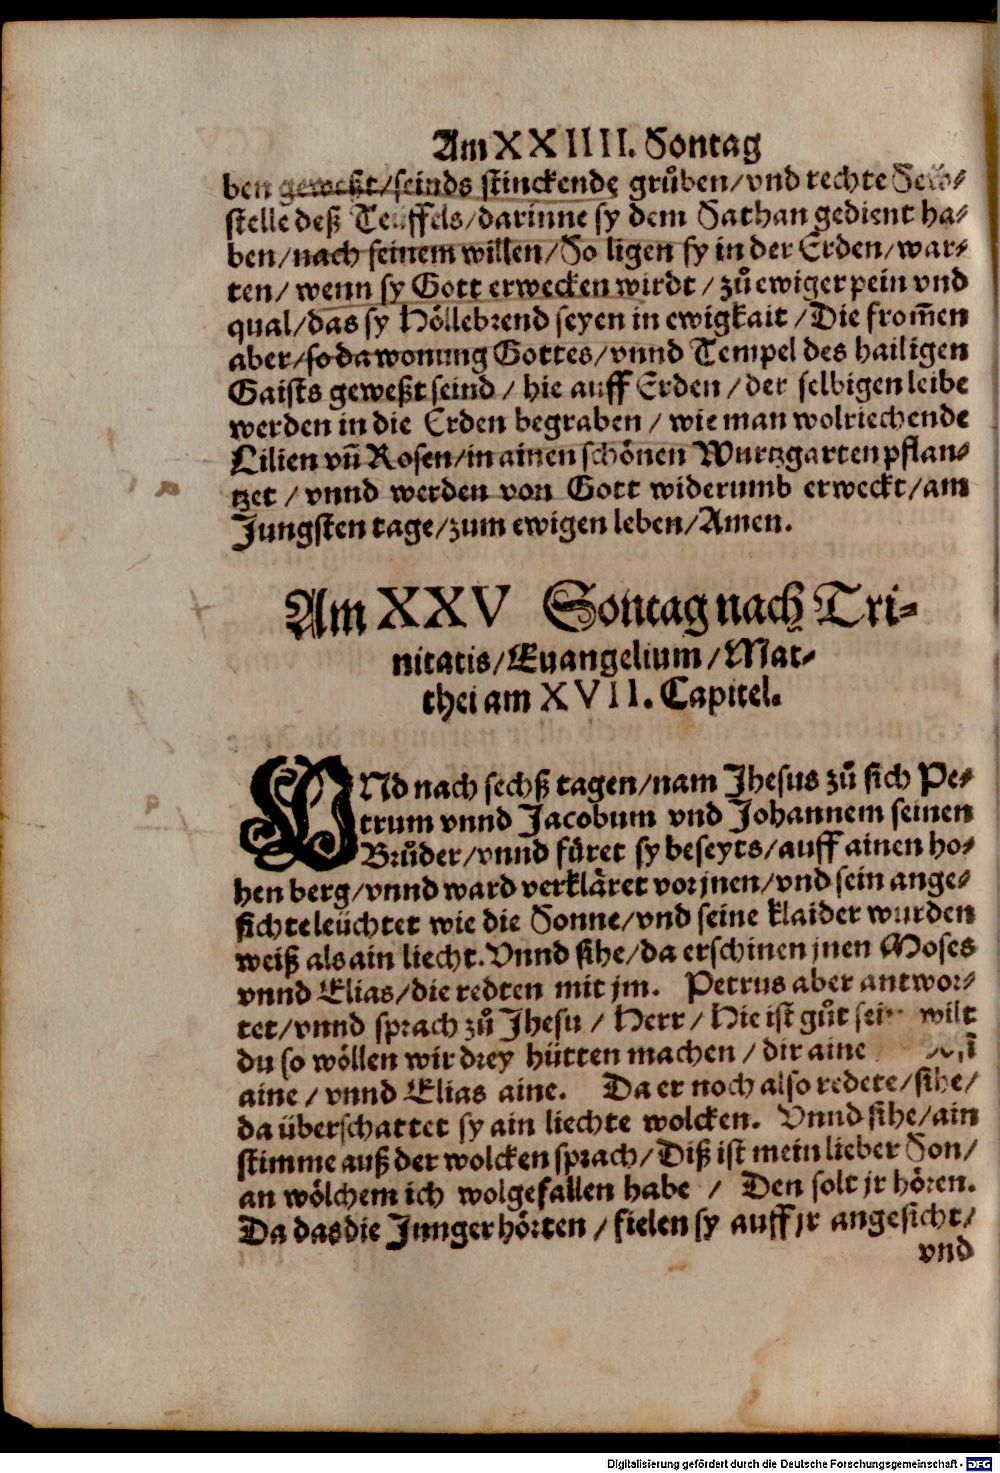 Am XXIIII. Sontag
ben geweßt/seinds stinckende grůben/vnd rechte
stelle deß Teuffels/darinne sy dem Sathan gedient ha⸗
ben/nach seinem willen/So ligen sy in der Erden/war⸗
ten/ wenn sy Gott erwecken wirdt / zů ewiger pein vnd
qual/das sy Höllebrend seyen in ewigkait /Die from̃en
aber/so da wonung Gottes/vnnd Tempel des hailigen
Gaists geweßt seind / hie auff Erden /der selbigen leibe
werden in die Erden begraben / wie man wolriechende
Lilien vñ Rosen/in ainen schönen Wurtzgarten pflan⸗
tzet / vnnd werden von Gott widerumb erweckt/am
Jungsten tage/zum ewigen leben/Amen.
Am XXV Sontag nach Tri⸗
nitatis/Euangelium/Mat⸗
thei am XVII. Capitel.
VNd nach sechß tagen/nam Jhesus zů sich Pe⸗
trum vnnd Jacobum vnd Johannem seinen
Brůder/vnnd fůret sy beseyts/auff ainen ho⸗
hen berg/vnnd ward verkläret vor jnen/vnd sein ange⸗
sichte leüchtet wie die Sonne/vnd seine klaider wurden
weiß als ain liecht. Vnnd sihe/da erschinen jnen Moses
vnnd Elias/die redten mit jm. Petrus aber antwor⸗
tet/vnnd sprach zů Jhesu / Herr/Hie ist gůt sein wilt
du so wöllen wir drey hütten machen /dir aine
aine / vnnd Elias aine. Da er noch also redete/sihe/
da überschattet sy ain liechte wolcken. Vnnd sihe/ain
stimme auß der wolcken sprach/Diß ist mein lieber Son/
an wölchem ich wolgefallen habe / Den solt jr hören.
Da das die Junger hörten /fielen sy auff jr angesicht/
vnd
Digitalisierung gefördert durch die Deutsche Forschungsgemeinschaft - DFG